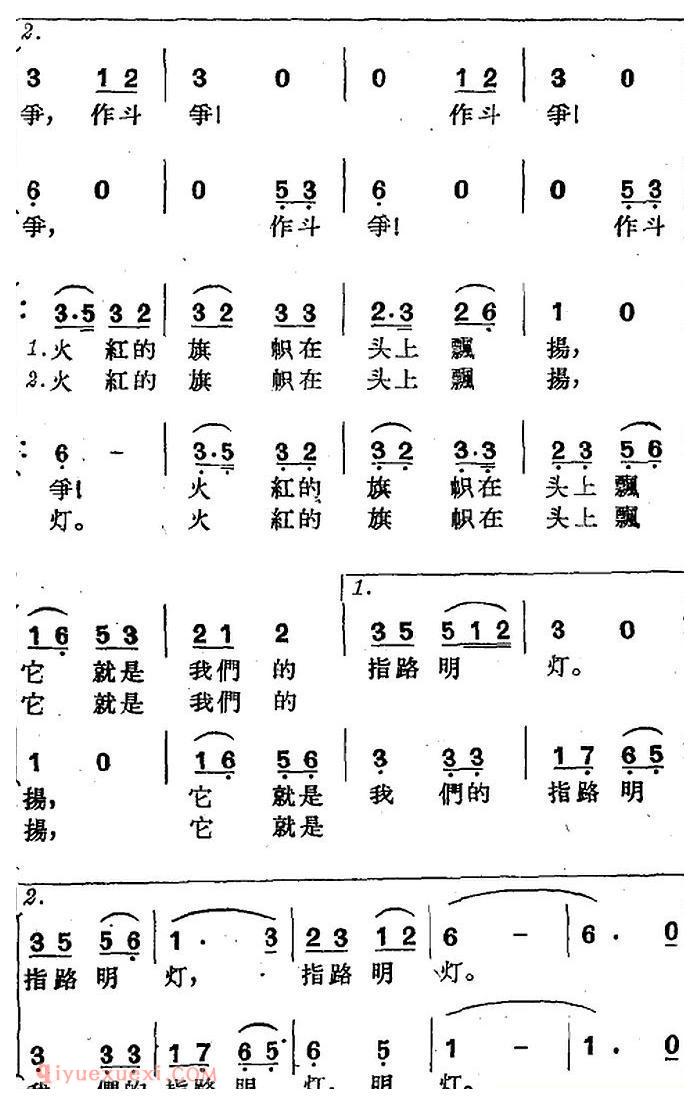 2.
3 1 2 | 3 0 | 0 1 2 | 3 0
爭, 作斗 爭! 作斗 爭!
6 0 | 0 5 3 | 6 0 | 0 5 3
爭, 作斗 爭! 作斗
3·5 3 2 | 3 2 3 3 | 2·3 2 6 | 1 0
1.火 紅的 旗 帜在 头上飄 揚,
2.火 紅的 旗 帜在 头上飄 揚,
6 - | 3·5 3 2 | 3 2 3·3 | 2 3 5 6
爭! 火 紅的 旗 帜在 头上飄
灯。 火 紅的 旗 帜在 头上飄
1.
1 6 5 3 | 2 1 2 | 3 5 5 1 2 | 3 0
它 就是 我們 的 指路 明 灯。
它 就是 我們 的
1 0 | 1 6 5 6 | 3 3 3 | 1 7 6 5
揚, 它 就是 我 們的 指路 明
揚, 它 就是
2.
3 5 5 6 | 1 · 3 | 2 3 1 2 | 6 - | 6 · 0
指路 明 灯, 指路 明 灯。
3 3 3 | 1 7 6 5 | 6 5 | 1 - | 1 · 0
我 們的 指路 明 灯, 明 灯。
qiyuexuexi.com